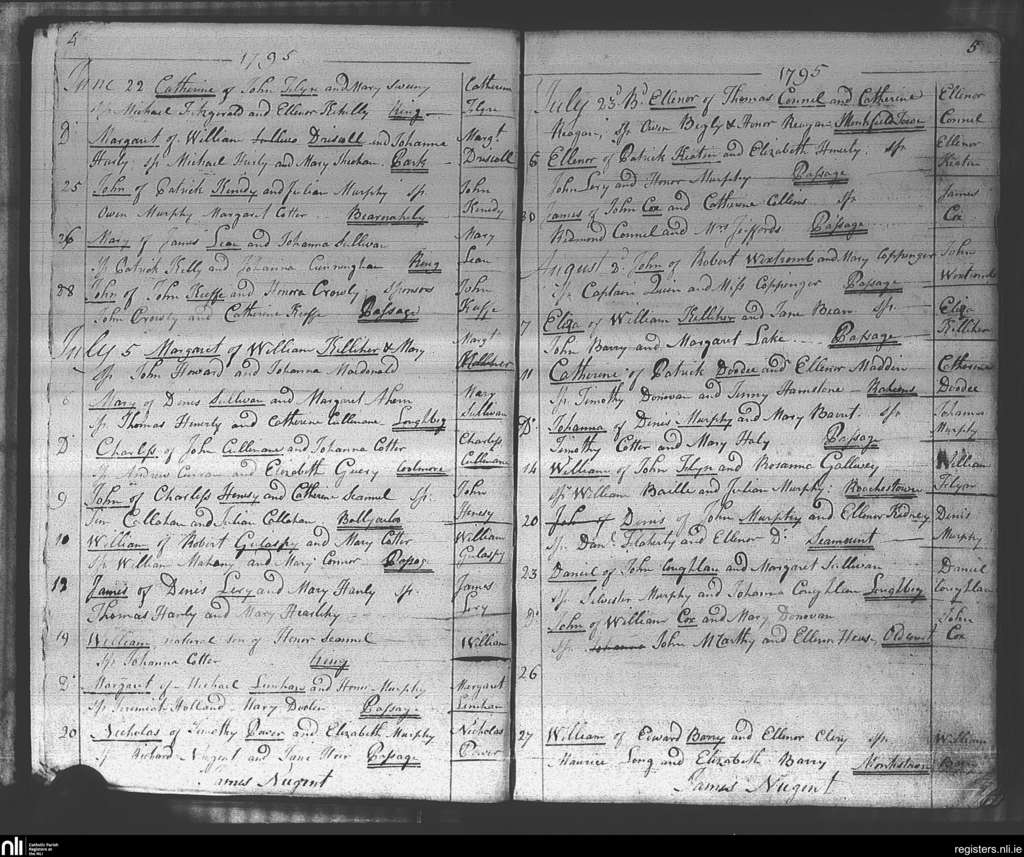 4
1795
June 22 Catherine of John Flynn and Mary Sweeny
Sp. Michael Fitzgerald and Ellenor Kihilly Ring
Catherine
Flynn
Do Margaret of William Driscoll and Johanna
Hurly Sp. Michael Hurly and Mary Park
Margt.
Driscoll
25 John of Patrick Kinedy and Julian Murphy Sp.
Owen Murphy Margaret Cotter
John
Kinedy
26 Mary of James Lean and Johanna Sullivan
Sp. Patrick Kelly and Johanna Cunningham Ring
Mary
Lean
28 John of John Keeffe and Honora Crowly sponsors
John Crowly and Catherine Keeffe Passage
John
Keeffe
July 5 Margaret of William Killiher & Mary
Sp. John Howard and Johanna Macdonald
Margt.
Killiher
6 Mary of Denis Sullivan and Margaret Ahern
Sp. Thomas and Catherine Cullinane Loughbeg
Mary
Sullivan
Do Charless of John Cullinane and Johanna Cotter
Sp. Andrew and Elizabeth Coolmore
Charless
Cullinane
9 John of Charless Henesy and Catherine Scannel Sp.
Tim Callahan and Julian Callahan
John
Henesy
10 William of Robert Gulaspy and Mary Cotter
Sp. William Mahony and Mary Connor Passage
William
Gulaspy
12 James of Denis and Mary Hanly Sp.
Thomas and Mary
James
19 William natural son of Honor Scannel
Sp. Johanna Cotter Ring
William
Do Margaret of Michael Linehan and Honor Murphy
Sp. Jeremiah Holland Mary Passage
Margaret
Linehan
20 Nicholas of Timothy Power and Elizabeth Murphy
Sp. Richard Nugent and Jane Passage
Nicholas
Power
James Nugent
5
1795
July 23d B. Ellenor of Thomas Connel and Catherine
Reagan, Sp. Owen Begly & Honor Reagan
Ellenor
Connel
6 Ellenor of Patrick Keatin and Elizabeth Sp.
John and Honor Murphy Passage
Ellenor
Keatin
30 James of John Cox and Catherine Collens Sp.
Redmond Connel and Mrs Jeffords Passage
James
Cox
August 2d John of Robert and Mary Coppenger
Sp. Captain Quin and Miss Coppinger Passage
John
7 Eliza of William Killiher and Jane Bean Sp.
John Barry and Margaret Lake Passage
Eliza
Killiher
11 Catherine of Patrick Doodee and Ellenor Madden
Sp. Timothy Donovan and Jenny Raheens
Catherine
Doodee
Do Johanna of Denis Murphy and Mary Barrit Sp.
Timothy Cotter and Mary Haly Passage
Johanna
Murphy
14 William of John Flynn and Rosanna Gallwey
Sp. William Baille and Julian Murphy Roachestown
William
Flynn
20 Denis of John Murphy and Ellenor Kidney
Sp. Danl. Flaherty and Ellenor Do. Seamount
Denis
Murphy
23 Daniel of John Coughlan and Margaret Sullivan
Sp. Silvester Murphy and Johanna Coughlan Loughbeg
Daniel
Coughlan
Do John of William Cox and Mary Donovan
Sp. John McCarthy and Ellenor Oldcourt
John
Cox
26
27 William of Edward Barry and Ellenor Clery Sp.
Maurice Long and Elizabeth Barry Monkstown
William
Barry
James Nugent
nli
Catholic Parish
Registers at
the NLI
registers.nli.ie